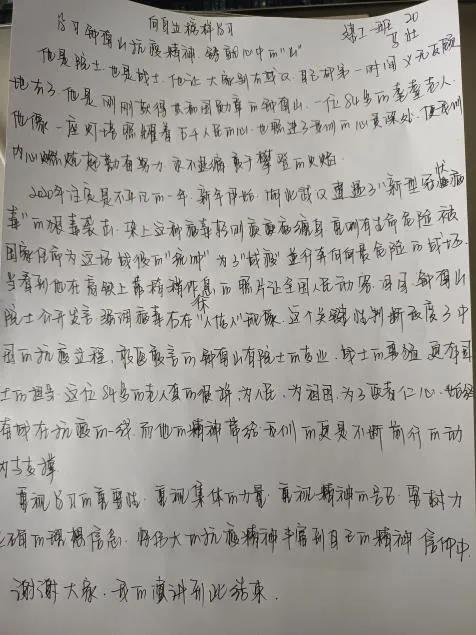 向身边榜样学习
学习钟南山抗疫精神 铸就心中的"山"
建工一班 20
他是院士也是战士 他让大家别去武汉 自己却第一时间义无反顾
地去了。他是刚刚获得共和国勋章的钟南山 一位84岁的耄耋老人.
他像一座灯塔照耀着万千人民的心 也照进了我们的心灵深处 使我们
内心燃烧起勤奋努力 永不退 勇于攀登的火焰.
2020年注定是不平凡的一年. 新年伊始 湖北武汉遭遇了"新型冠状病
毒"的猛毒袭击. 染上这种病毒轻则 病痛缠身 重则有生命危险 被
国家任命为这场战役的 为了"战疫"逆行奔向最危险的战场.
当看到他在高铁上靠椅稍作休息的照片让全国人民动容. 钟南山
院士公开发言 强调病毒存在"人传人"现象. 这个关键性判断改变了中
国的抗疫立程. 敢医敢言的钟南山有院士的专业 战士的勇猛 更有国
士的担当. 这位84岁的老人 为人民. 为祖国. 为了医者仁心. 始终
奋战在抗疫的一线. 而他的精神带给我们的更是不断前行的动
力与支撑.
重视学习的重要性. 重视集体的力量. 重视精神的号召 要树力
正确的理想信念. 将伟大的抗疫精神丰富到自己的精神信仰中.
谢谢大家. 我的演讲到此结束.